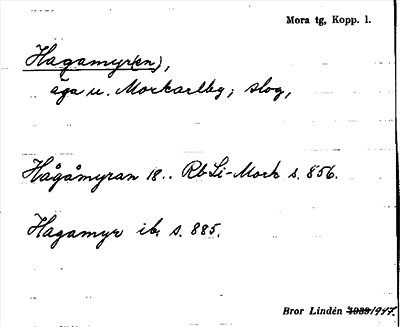 Mora tg, Kopp. l.
Hagamyr(en),
äga u. Morkarlby; slog,
Hågåmyran 18.. Rb Li-Mork s. 856.
Hagamyr ib. s. 885.
Bror Lindén 1939/1947.